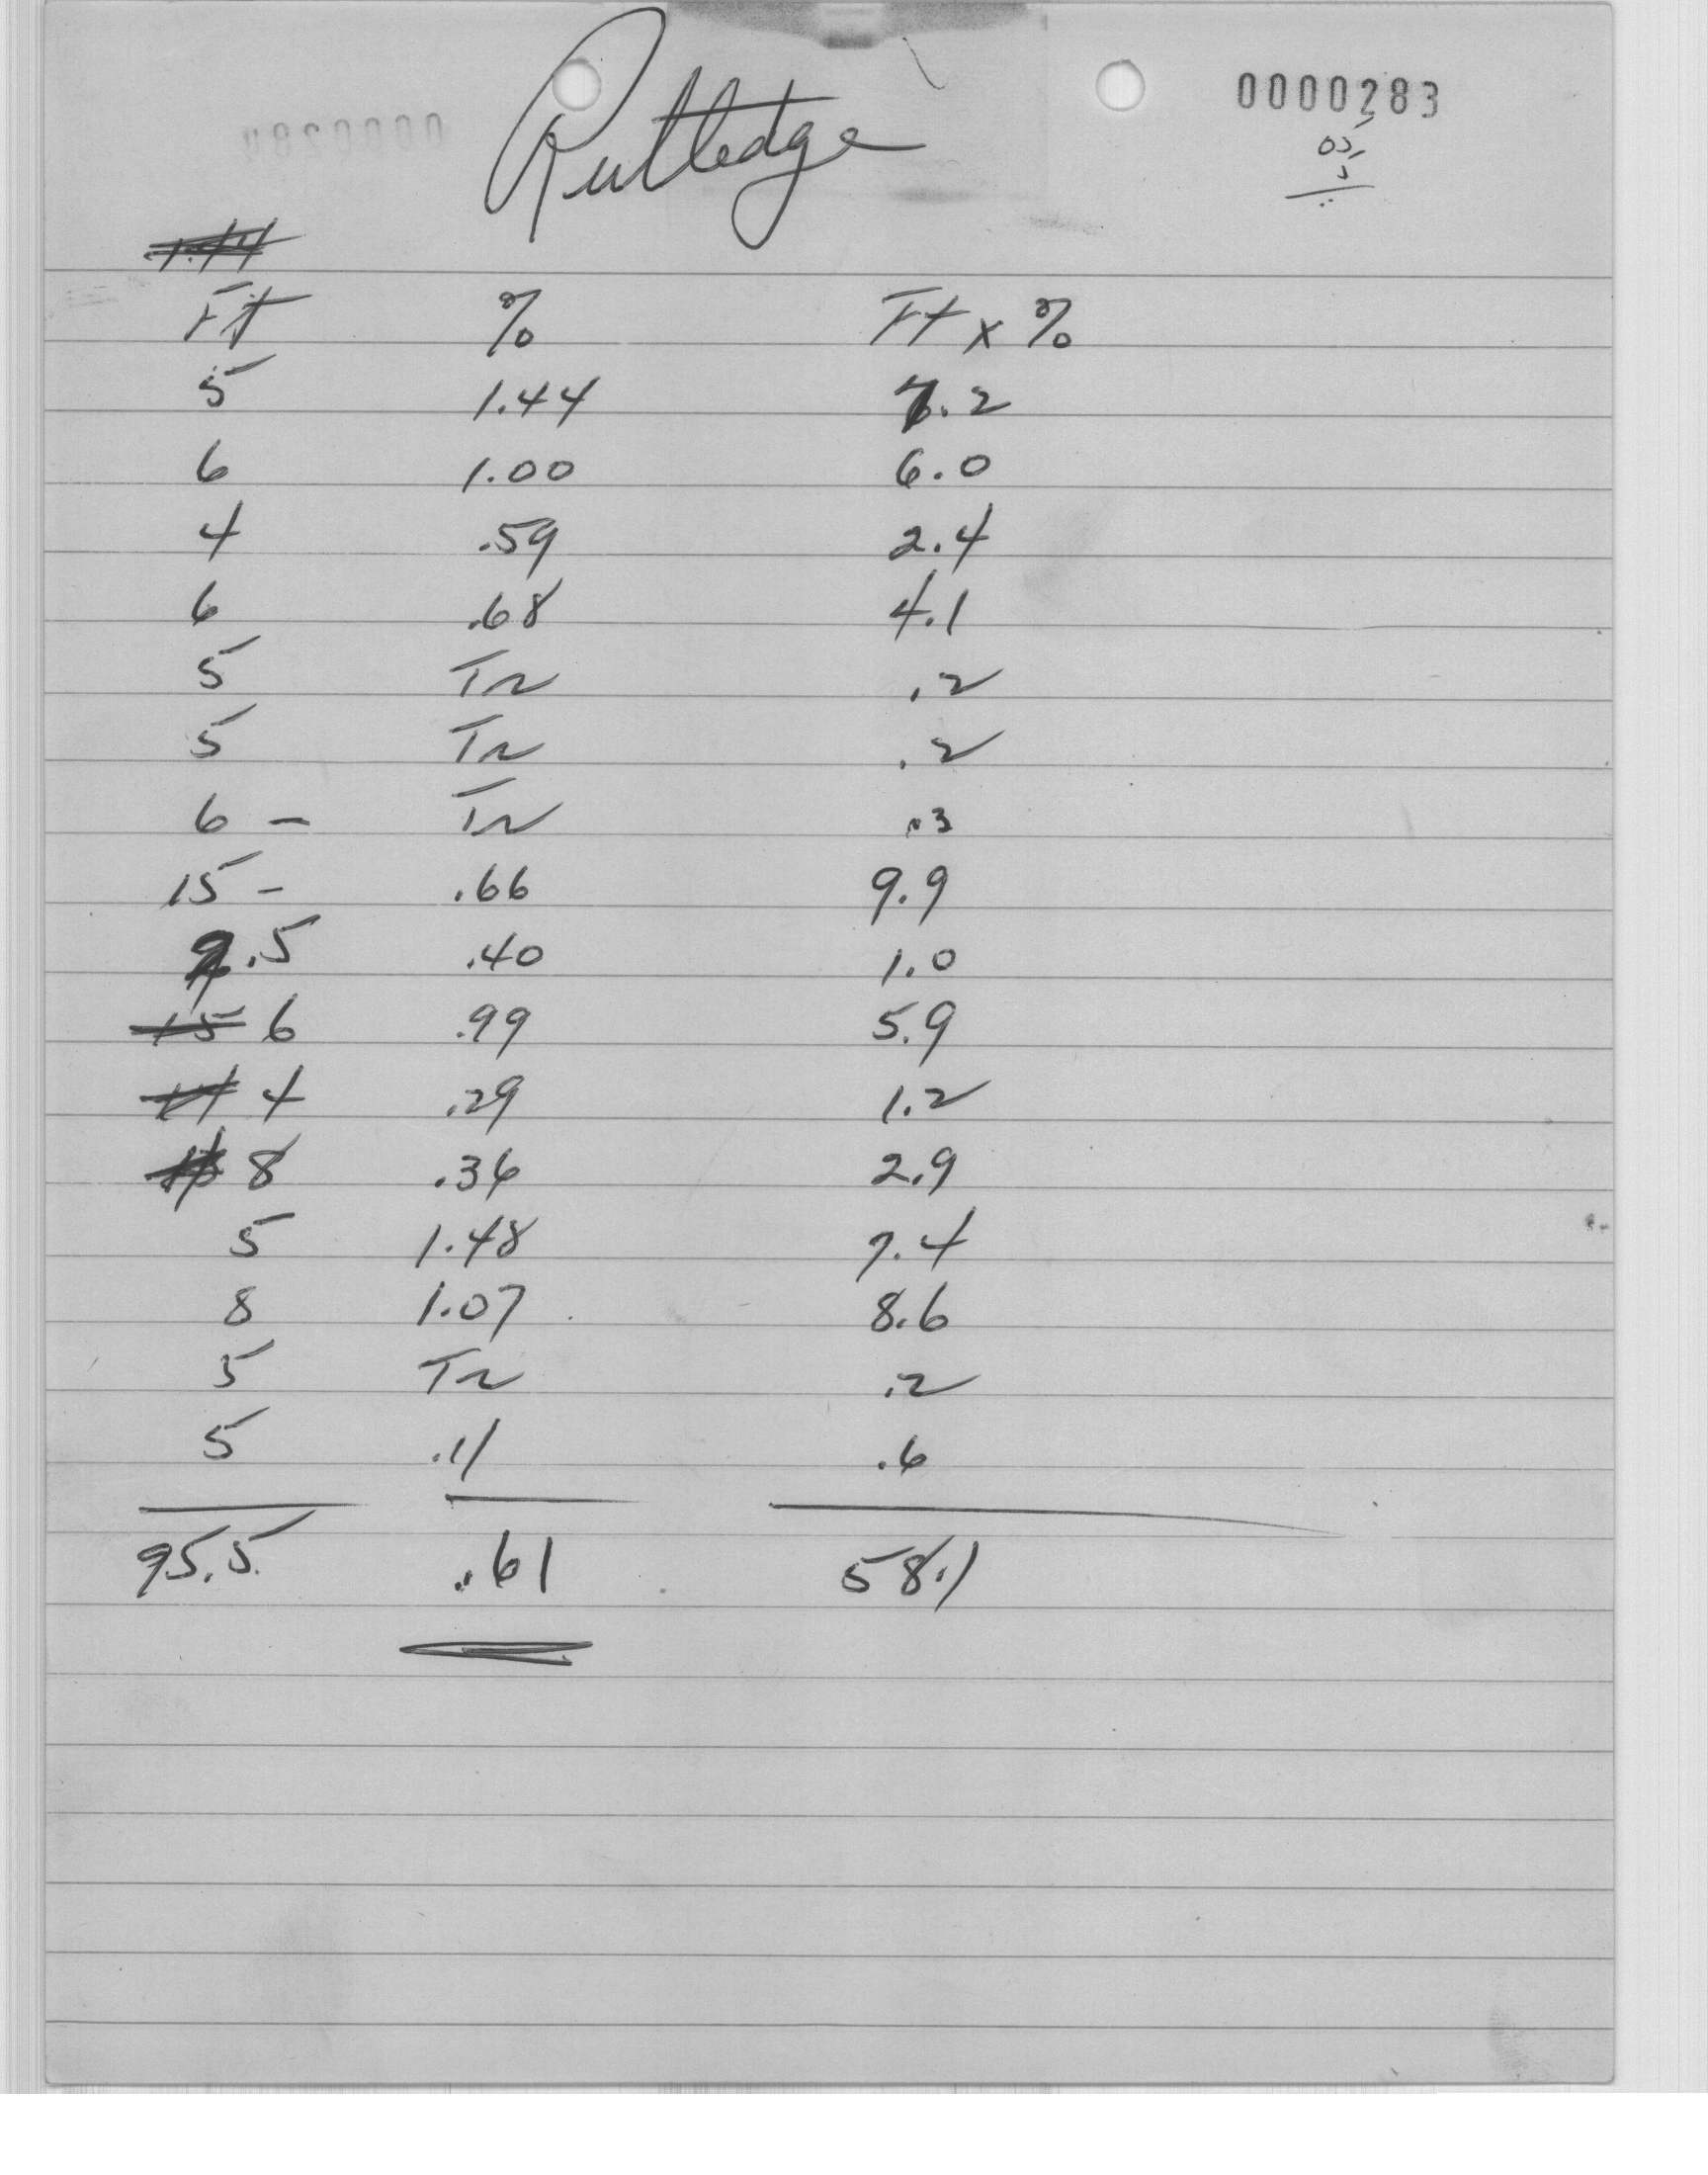 Rutledge
0000283
05
5
Ft % Ft x %
5 1.44 7.2
6 1.00 6.0
4 .59 2.4
6 .68 4.1
5 Tr .2
5 Tr .2
6 - Tr .3
15 - .66 9.9
2.5 .40 1.0
15 6 .99 5.9
4 .29 1.2
8 .36 2.9
5 1.48 7.4
8 1.07 8.6
5 Tr .2
5 .11 .6
95.5 .61 58.1